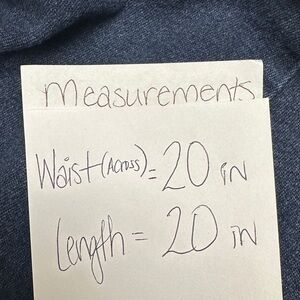 Measurements
Waist (Across) = 20 in
Length = 20 in